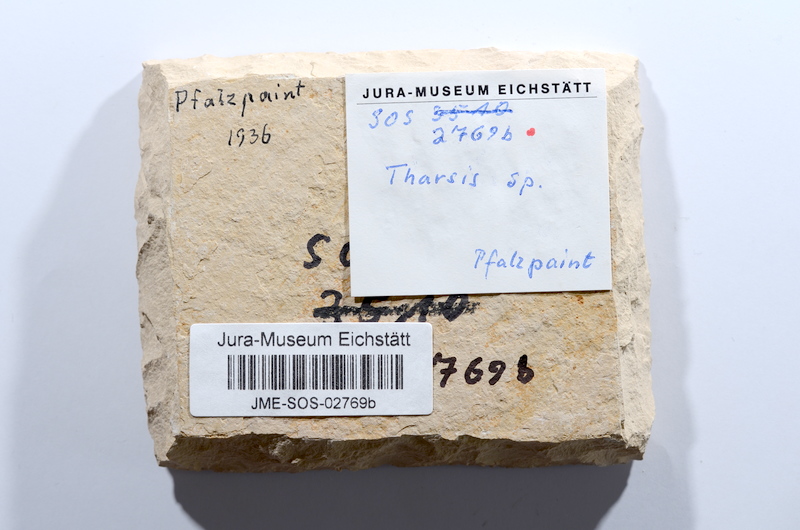 Pfalzpaint
1936
JURA-MUSEUM EICHSTÄTT
SOS 3510
2769b
Tharsis sp.
Pfalzpaint
Jura-Museum Eichstätt
JME-SOS-02769b
769b